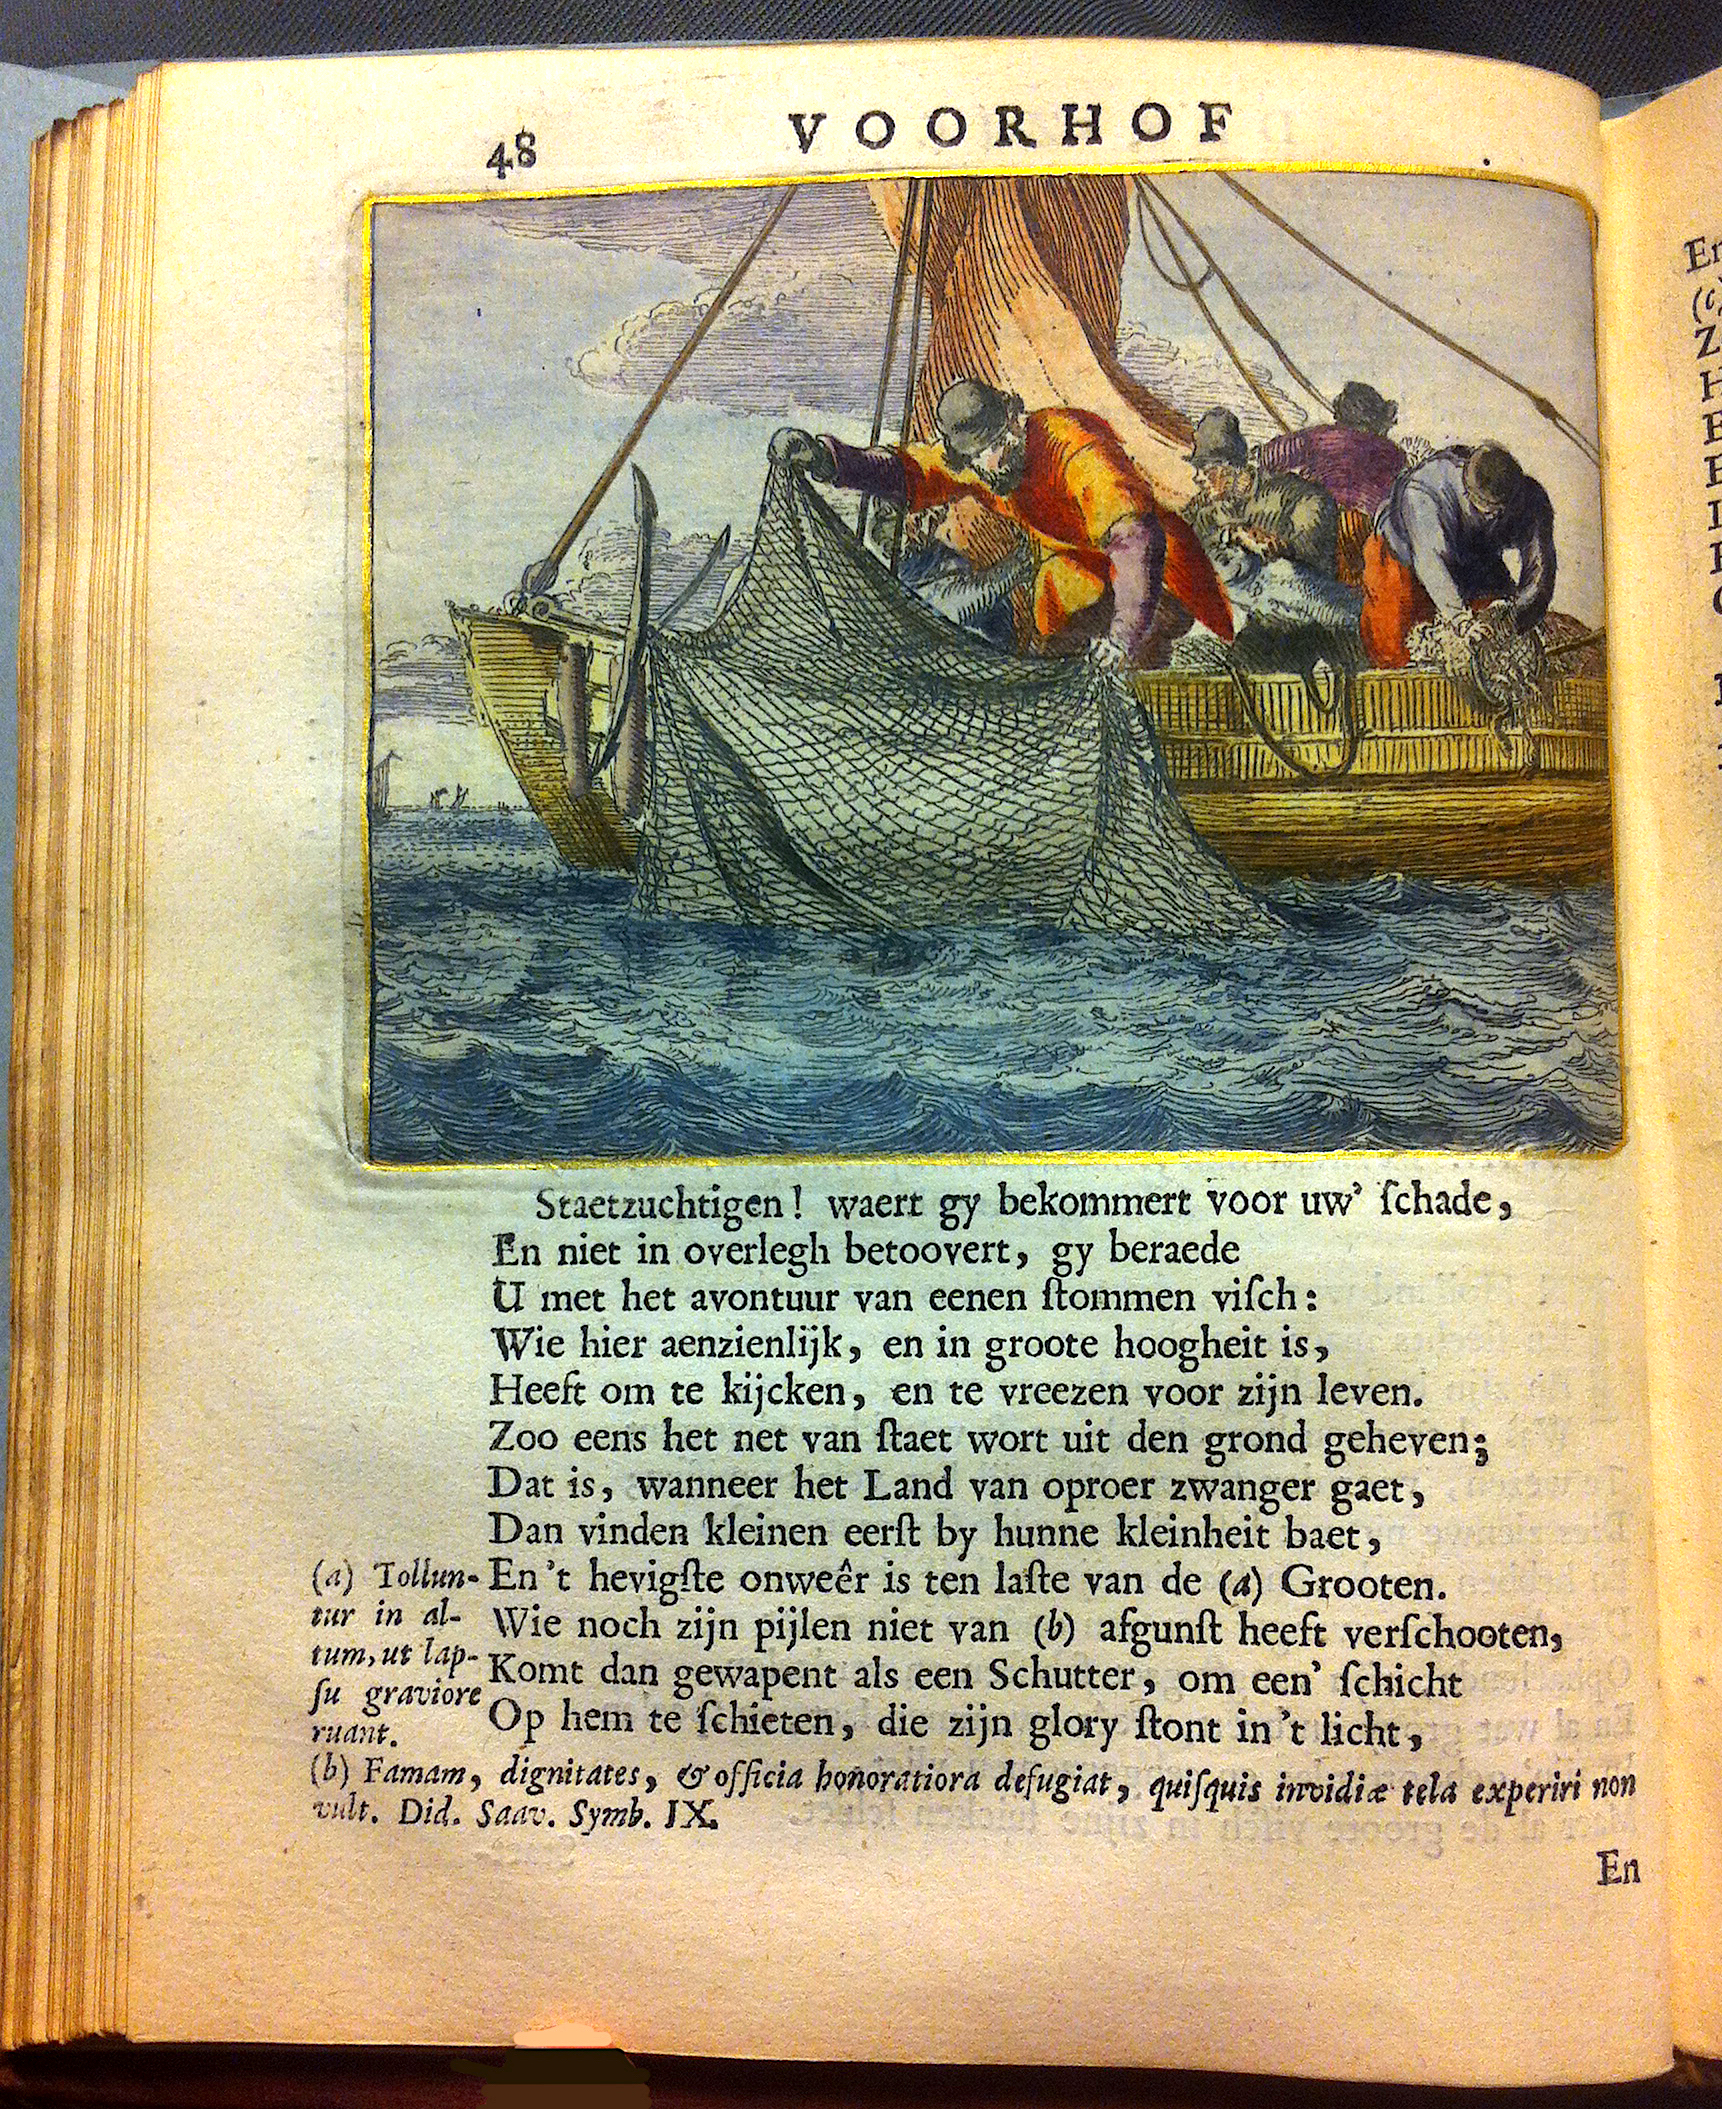 48
VOORHOF
Staetzuchtigen! waert gy bekommert voor uw' ſchade,
En niet in overlegh betoovert, gy beraede
U met het avontuur van eenen ſtommen viſch:
Wie hier aenzienlijk, en in groote hoogheit is,
Heeft om te kijcken, en te vreezen voor zijn leven.
Zoo eens het net van ſtaet wort uit den grond geheven;
Dat is, wanneer het Land van oproer zwanger gaet,
Dan vinden kleinen eerſt by hunne kleinheit baet,
En 't hevigſte onweêr is ten laſte van de (a) Grooten.
Wie noch zijn pijlen niet van (b) afgunſt heeft verſchooten,
Komt dan gewapent als een Schutter, om een' ſchicht
Op hem te ſchieten, die zijn glory ſtont in 't licht,
(a) Tollun-
tur in al-
tum, ut lap-
ſu graviore
ruant.
(b) Famam, dignitates, & officia honoratiora defugiat, quiſquis invidiæ tela experiri non
vult. Did. Saav. Symb. IX.
En